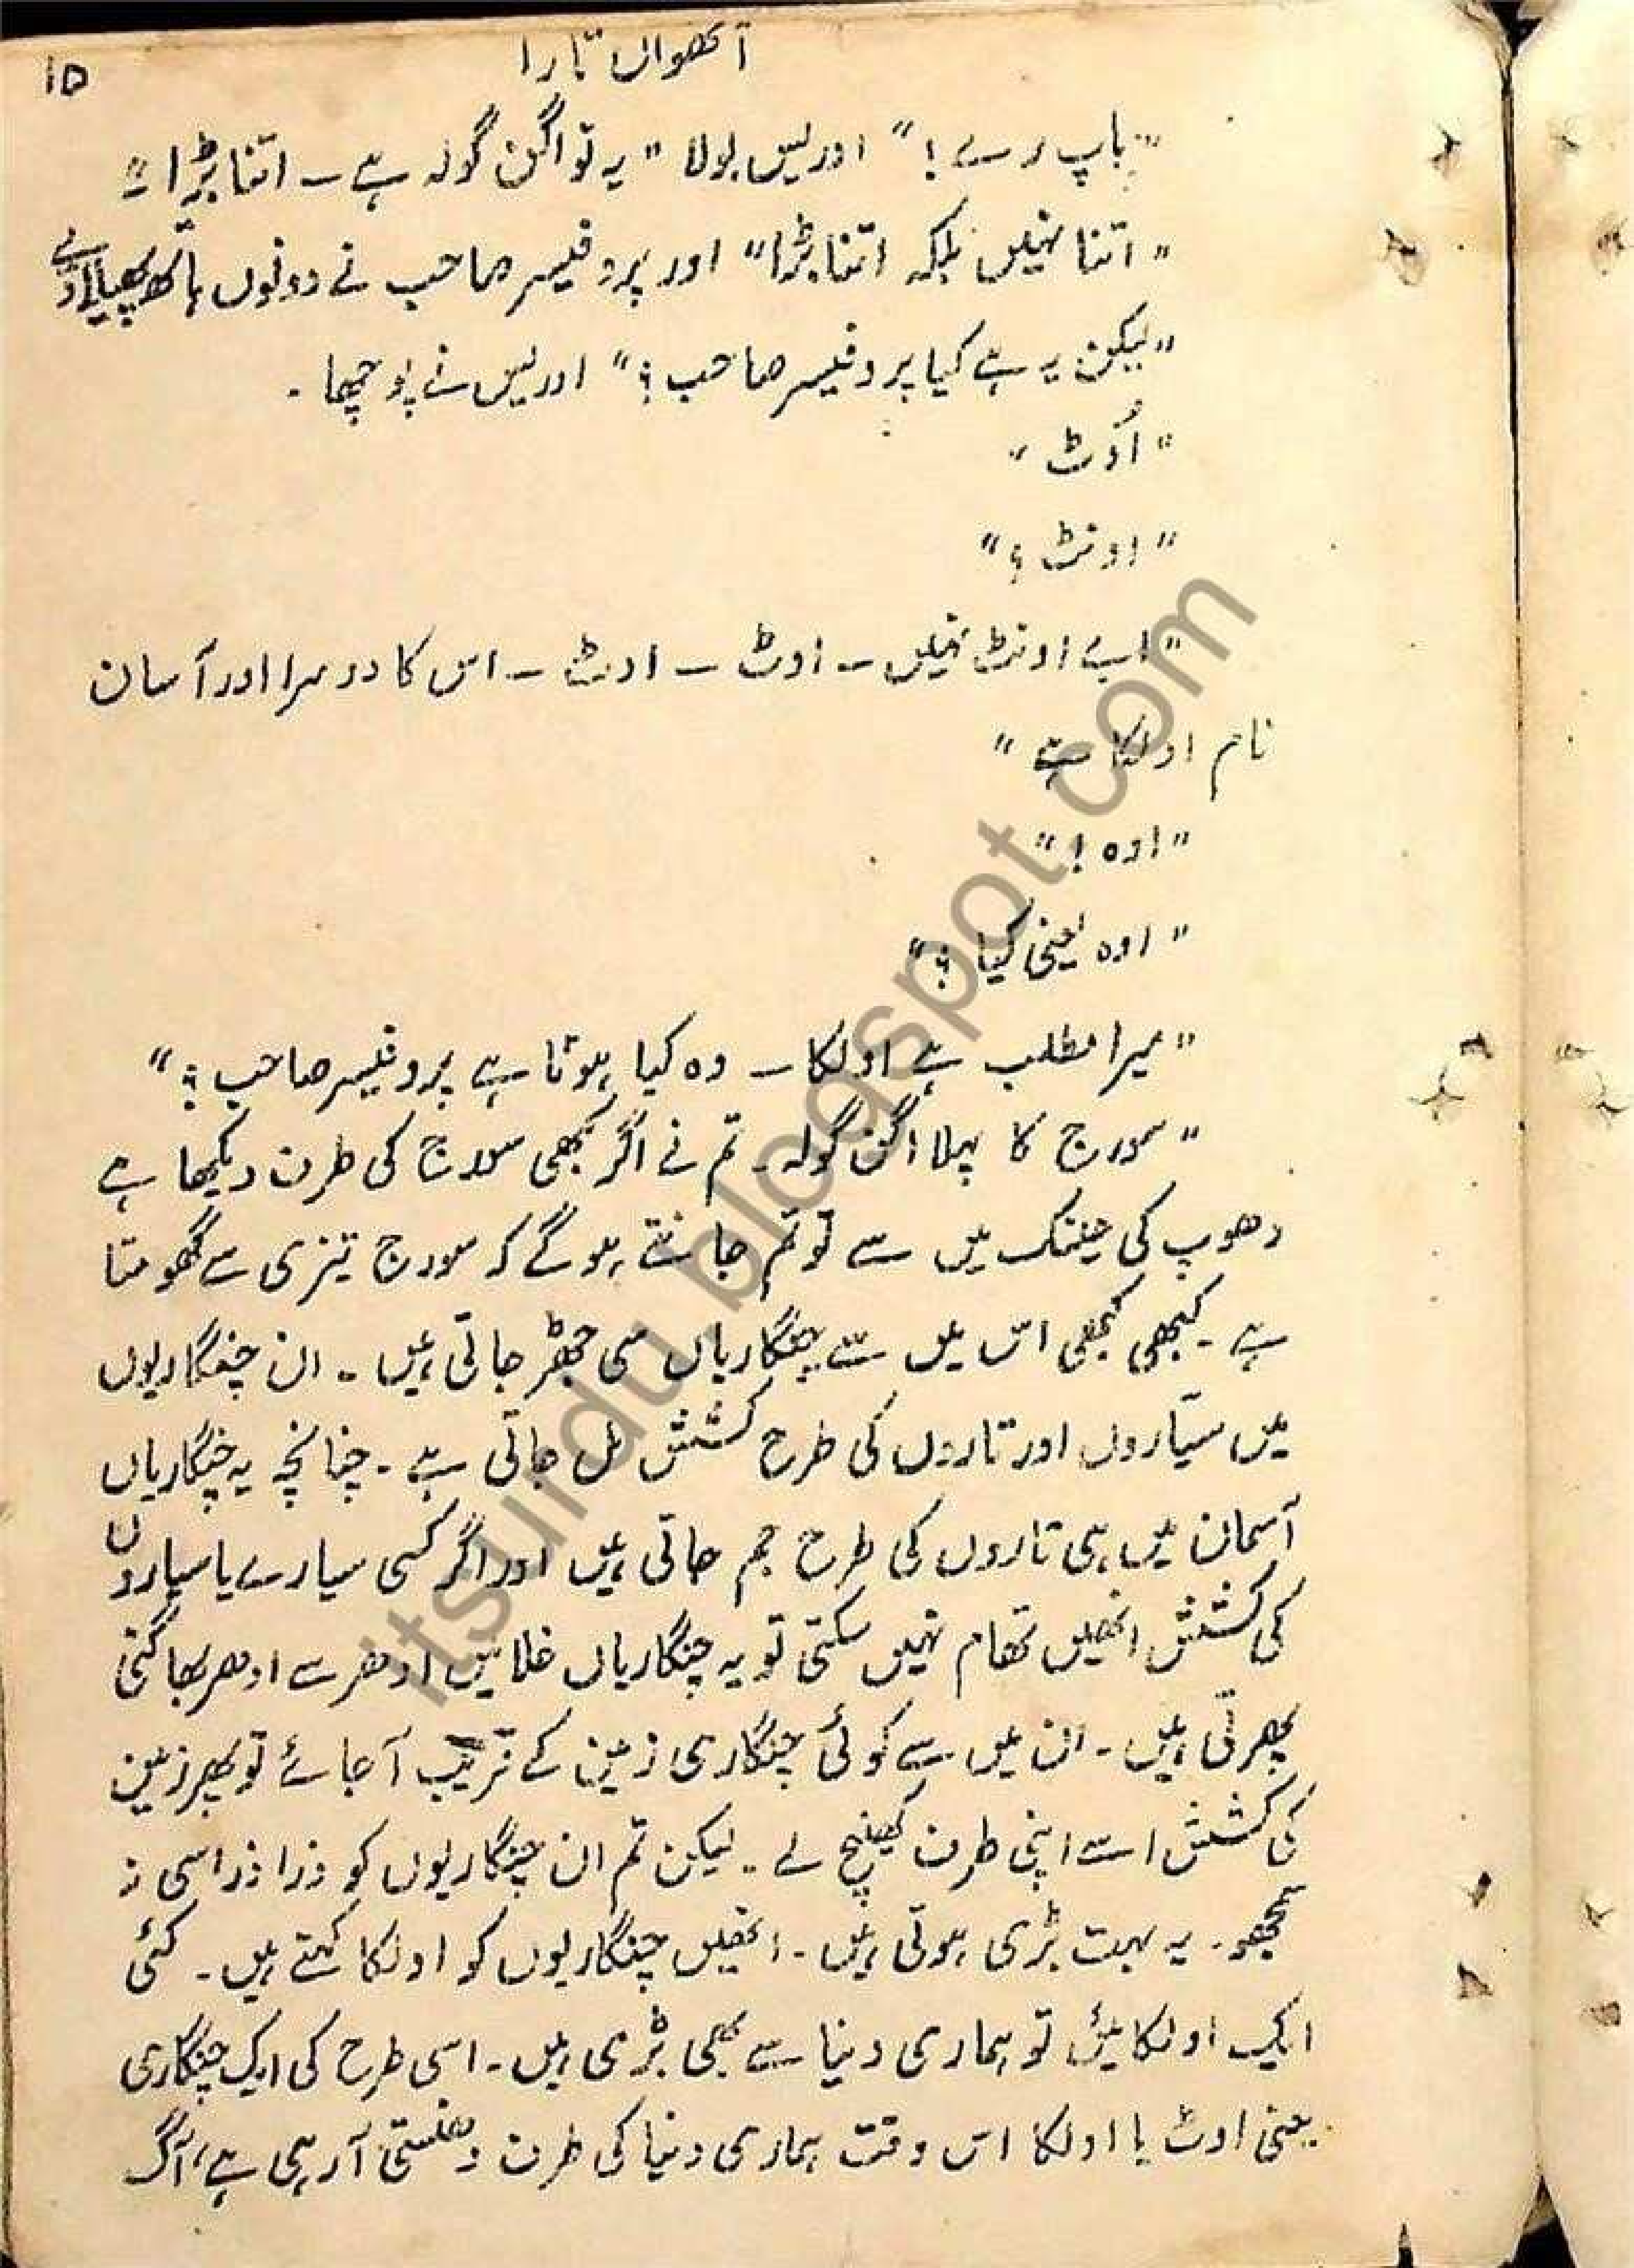 آٹھواں تارا
۱۵
"باپ رے!" ادریس بولا "یہ تو اگن گولہ ہے ۔ اتنا بڑا"
"اتنا نہیں بلکہ اتنا بڑا" اور پروفیسر صاحب نے دونوں ہاتھ پھیلا دئے
"لیکن یہ ہے کیا پروفیسر صاحب؟" ادریس نے پوچھا ۔
"اُوٹ"
"اونٹ؟"
"ابے اونٹ نہیں ۔ اوٹ ۔ اوٹ ۔ اس کا دوسرا اور آسان
نام اولکا ہے"
"اوہ!"
"اوہ یعنی کیا؟"
"میرا مطلب ہے اولکا ۔ وہ کیا ہوتا ہے پروفیسر صاحب؟"
"سورج کا پہلا اگن گولہ ۔ تم نے اگر کبھی سورج کی طرف دیکھا ہے
دھوپ کی عینک میں سے تو تم جانتے ہوگے کہ سورج تیزی سے گھومتا
ہے ۔ کبھی کبھی اس میں سے چنگاریاں سی جھڑ جاتی ہیں ۔ ان چنگاریوں
میں سیّاروں اور تاروں کی طرح کشش مل جاتی ہے ۔ چنانچہ یہ چنگاریاں
آسمان میں ہی تاروں کی طرح جم جاتی ہیں اور اگر کسی سیارے یا سیاروں
کی کشش انھیں تھام نہیں سکتی تو یہ چنگاریاں خلا میں ادھر سے ادھر بھاگتی
پھرتی ہیں ۔ ان میں سے کوئی چنگاری زمین کے قریب آ جائے تو پھر زمین
کی کشش اسے اپنی طرف کھینچ لے ۔ لیکن تم ان چنگاریوں کو ذرا ذرا سی نہ
سمجھو ۔ یہ بہت بڑی ہوتی ہیں ۔ انھیں چنگاریوں کو اولکا کہتے ہیں ۔ کئی
ایک اولکائیں تو ہماری دنیا سے بھی بڑی ہیں ۔ اسی طرح کی ایک چنگاری
یعنی اوٹ یا اولکا اس وقت ہماری دنیا کی طرف دھنستی آ رہی ہے، آگ
itsurdu.blogspot.com